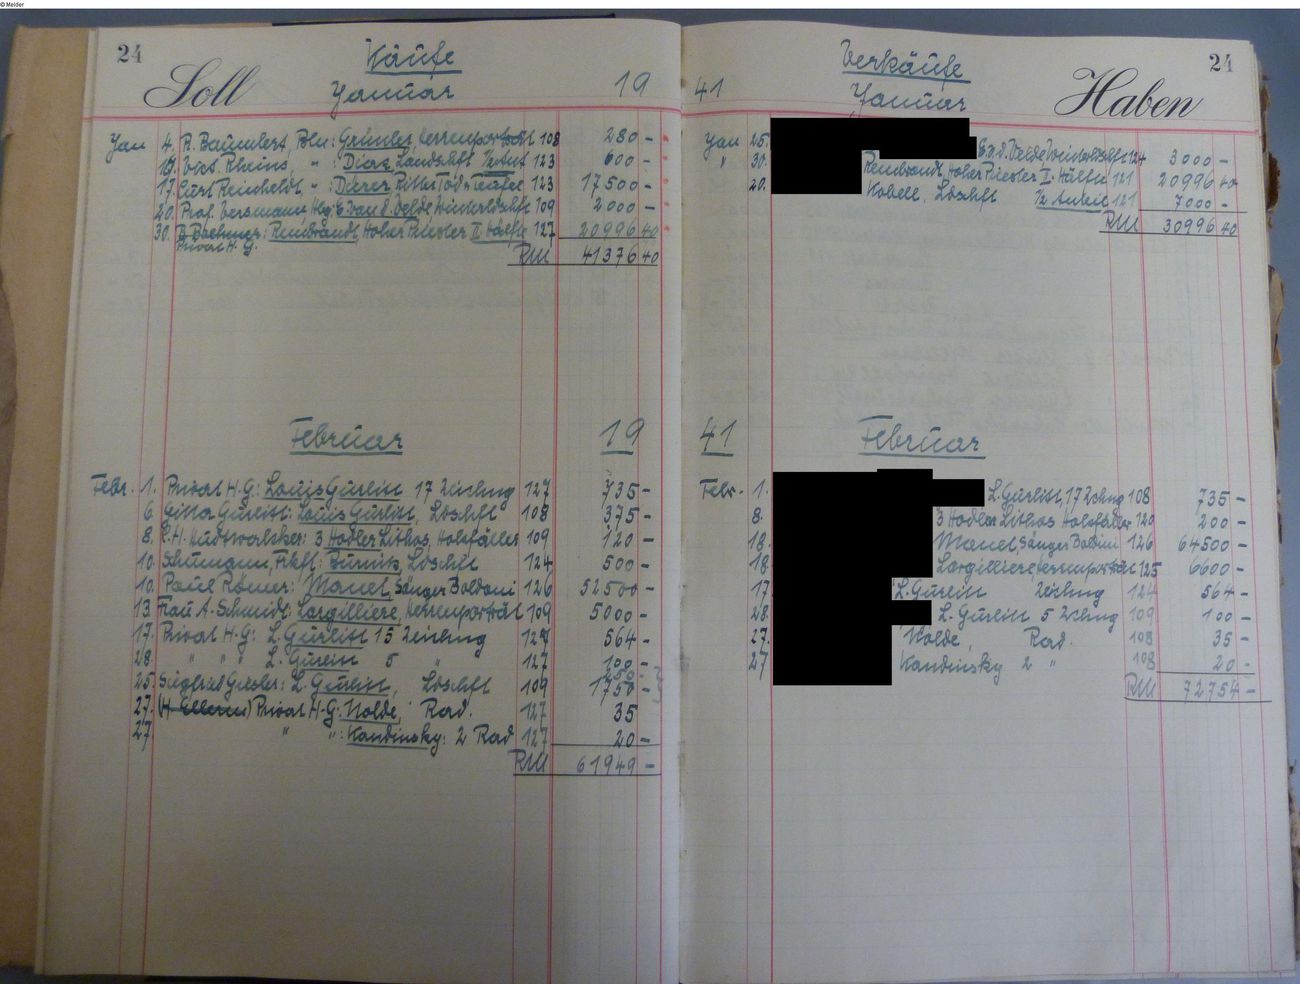 © Melder
24
Käufe
Soll
Januar
19
Jan 4. R. Baumbert, Bln: Grünler, Herrenporträt 108 280 –
16. Vikt. Rheins, " : Diaz Landschft ½ Ant 123 600 –
17. Curt Reinheldt, " : Dürer, Ritter Tod u Teufel 123 17500 –
20. Prof. Versmann, Hbg: E. van d. Velde Winterldschft 109 2000 –
30. B. Boehmer: Rembrandt, Hoher Priester II. Hälfte 127 20996 40
Privat H.G.
RM 41376 40
Februar 19
Febr. 1. Privat H-G: Louis Gurlitt 17 Zeichng 127 735 –
6. Gitta Gurlitt: Louis Gurlitt, Ldschft 108 375 –
8. H. Hudtwalker: 3 Hodler Lithos, Holzfäller 109 120 –
10. Schumann, Frkft: Bürnitz, Ldschft 124 500 –
10. Paul Römer: Manet, Sänger Baldoni 126 52500 –
13. Frau A. Schmidt: Largilliere, Herrenporträt 109 5000 –
17. Privat H-G: L. Gurlitt 15 Zeichng 127 564 –
28. " " " L. Gurlitt 5 " 127 100 –
25. Siegfried Giesler: L. Gurlitt, Ldschft 109 1750 –
27. Privat H-G: Nolde, Rad. 127 35
27 " " : Kandinsky: 2 Rad 127 20 –
RM 61949 –
24
Verkäufe
41
Januar
Haben
Jan 25. E. v. d. Velde Winterldschft 124 3000 –
" 30. Rembrandt, Hoher Priester I. Hälfte 121 20996 40
20. Kobell, Ldschft ½ Anteil 121 7000 –
RM 30996 40
41 Februar
Febr. 1. L. Gurlitt, 17 Zchng 108 735 –
8. 3 Hodler Lithos Holzfäller 120 200 –
18. Manet, Sänger Baldini 126 64500 –
18. Largilliere, Herrenporträt 125 6600 –
17 L. Gurlitt Zeichng 124 564 –
28. L. Gurlitt 5 Zchng 109 100 –
27. Nolde, Rad. 108 35 –
27 Kandinsky 2 " 108 20 –
RM 72754 –